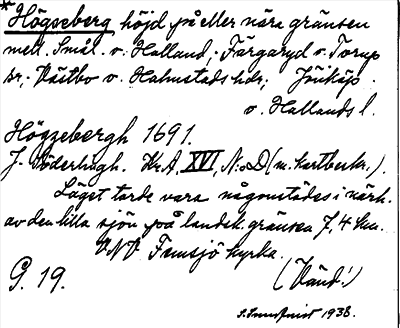 *Högseberg höjd på eller nära gränsen
mell. Smål. o. Halland; Färgaryd o. Torup
sr; Västbo o. Halmstads hdr; Jönköp.
o. Hallands l.
Högzebergh 1691.
J. Söderhagh. Kr.A, XVI, N:o D (m. kartbeskr.).
Läget torde vara någonstädes i närh.
av den lilla sjön på landsk. gränsen 7,4 km.
VNV Femsjö kyrka.
G. 19. (Vänd!)
1938.